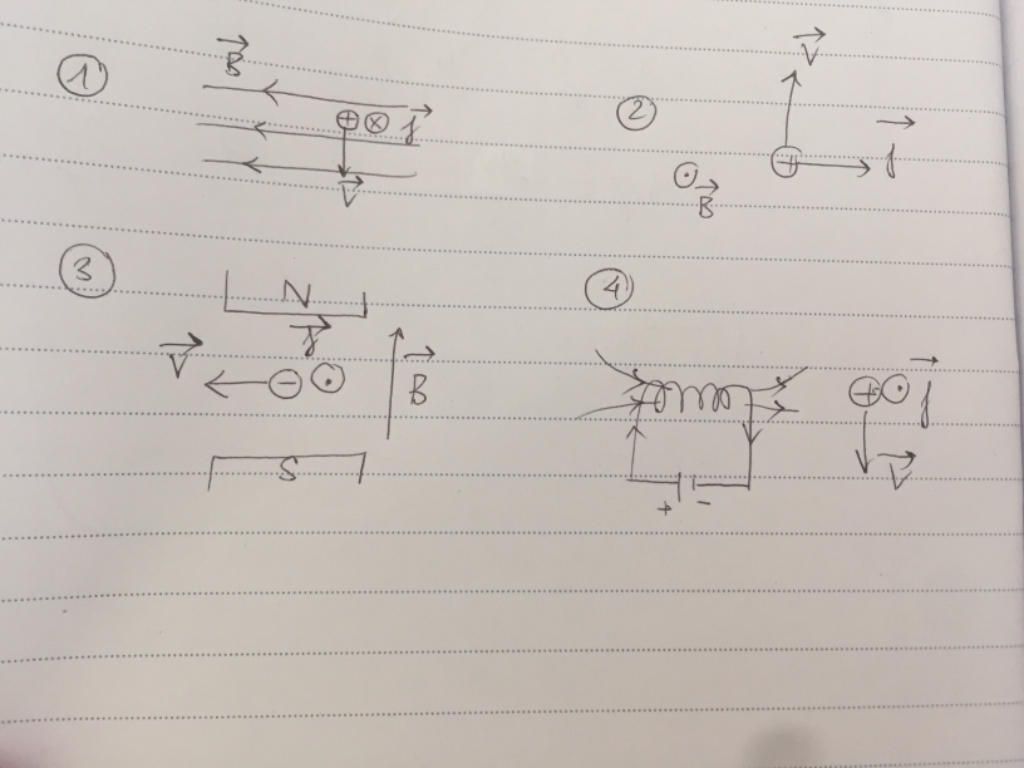 1
B
+ × f
V
2
V
+ f
B
3
N
f
V
− B
S
4
+ f
V
+ −